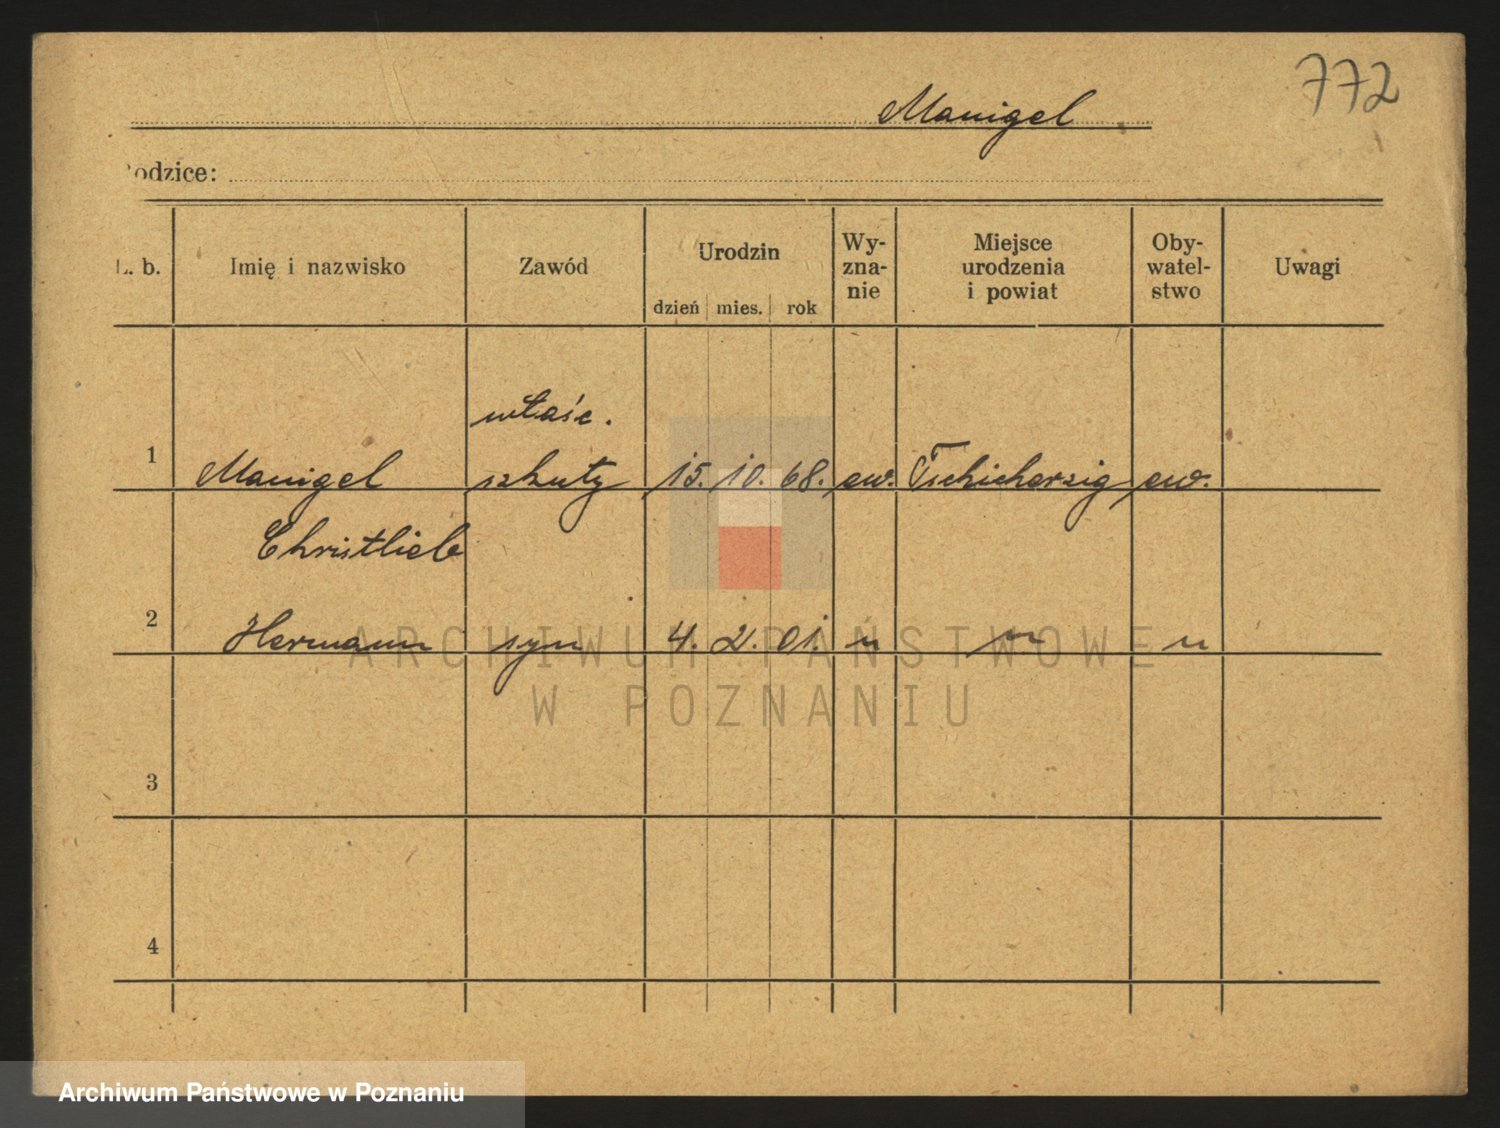 772
Manigel
Rodzice:
L. b. Imię i nazwisko Zawód Urodzin dzień mies. rok Wy-zna-nie Miejsce urodzenia i powiat Oby-watel-stwo Uwagi
właśc.
1 Manigel szkuty 15. 10. 68. ew. Tschicherzig ew.
Christlieb
2 Hermann syn 4. 2. 01. " " "
3
4
ARCHIWUM PAŃSTWOWE
W POZNANIU
Archiwum Państwowe w Poznaniu